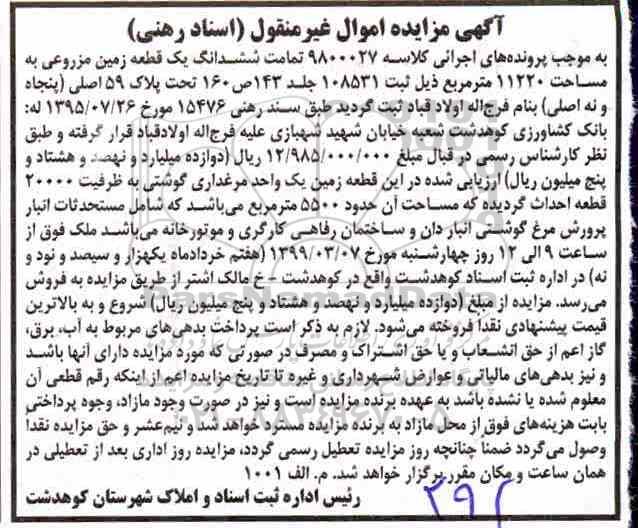 آگهی مزایده اموال غیرمنقول (اسناد رهنی)
به موجب پرونده‌های اجرائی کلاسه ۹۸۰۰۰۲۷ تمامت ششدانگ یک قطعه زمین مزروعی به
مساحت ۱۱۲۲۰ مترمربع ذیل ثبت ۱۰۸۵۳۱ جلد ۱۴۳ص۱۶۰ تحت پلاک ۵۹ اصلی (پنجاه
و نه اصلی) بنام فرج‌اله اولاد قباد ثبت گردید طبق سند رهنی ۱۵۴۷۶ مورخ ۱۳۹۵/۰۷/۲۶ له:
بانک کشاورزی کوهدشت شعبه خیابان شهید شهبازی علیه فرج‌اله اولادقباد قرار گرفته و طبق
نظر کارشناس رسمی در قبال مبلغ ۱۲/۹۸۵/۰۰۰/۰۰۰ ریال (دوازده میلیارد و نهصد و هشتاد و
پنج میلیون ریال) ارزیابی شده در این قطعه زمین یک واحد مرغداری گوشتی به ظرفیت ۲۰۰۰۰
قطعه احداث گردیده که مساحت آن حدود ۵۵۰۰ مترمربع می‌باشد که شامل مستحدثات انبار
پرورش مرغ گوشتی انبار دان و ساختمان رفاهی کارگری و موتورخانه می‌باشد ملک فوق از
ساعت ۹ الی ۱۲ روز چهارشنبه مورخ ۱۳۹۹/۰۳/۰۷ (هفتم خردادماه یکهزار و سیصد و نود و
نه) در اداره ثبت اسناد کوهدشت واقع در کوهدشت - خ مالک اشتر از طریق مزایده به فروش
می‌رسد. مزایده از مبلغ (دوازده میلیارد و نهصد و هشتاد و پنج میلیون ریال) شروع و به بالاترین
قیمت پیشنهادی نقداً فروخته می‌شود. لازم به ذکر است پرداخت بدهی‌های مربوط به آب، برق،
گاز اعم از حق انشعاب و یا حق اشتراک و مصرف در صورتی که مورد مزایده دارای آنها باشد
و نیز بدهی‌های مالیاتی و عوارض شهرداری و غیره تا تاریخ مزایده اعم از اینکه رقم قطعی آن
معلوم شده یا نشده باشد به عهده برنده مزایده است و نیز در صورت وجود مازاد، وجوه پرداختی
بابت هزینه‌های فوق از محل مازاد به برنده مزایده مسترد خواهد شد و نیم‌عشر و حق مزایده نقداً
وصول می‌گردد ضمناً چنانچه روز مزایده تعطیل رسمی گردد، مزایده روز اداری بعد از تعطیلی در
همان ساعت و مکان مقرر برگزار خواهد شد. م. الف ۱۰۰۱
رئیس اداره ثبت اسناد و املاک شهرستان کوهدشت